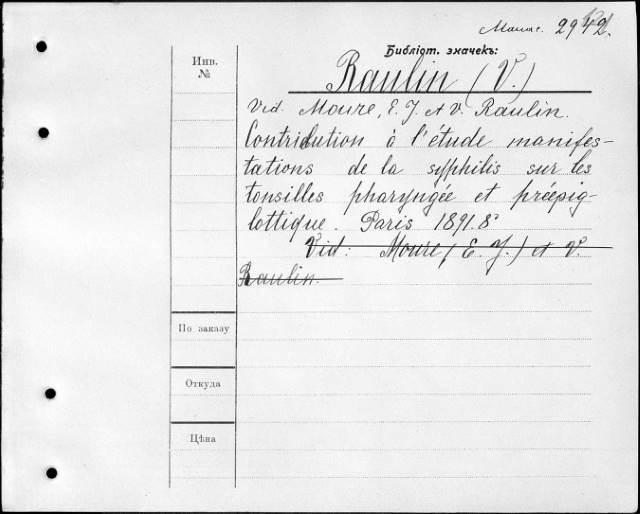 Инв.
№
Библіот. значекъ:
Raulin (V.)
Vid. Moure, E. J. et V. Raulin.
Contribution à l'étude manifes-
tations de la syphilis sur les
tonsilles pharyngée et préépig-
lottique. Paris 1891. 8°
Vid: Moure, (E. J.) et V.
Raulin.
По заказу
Откуда
Цѣна